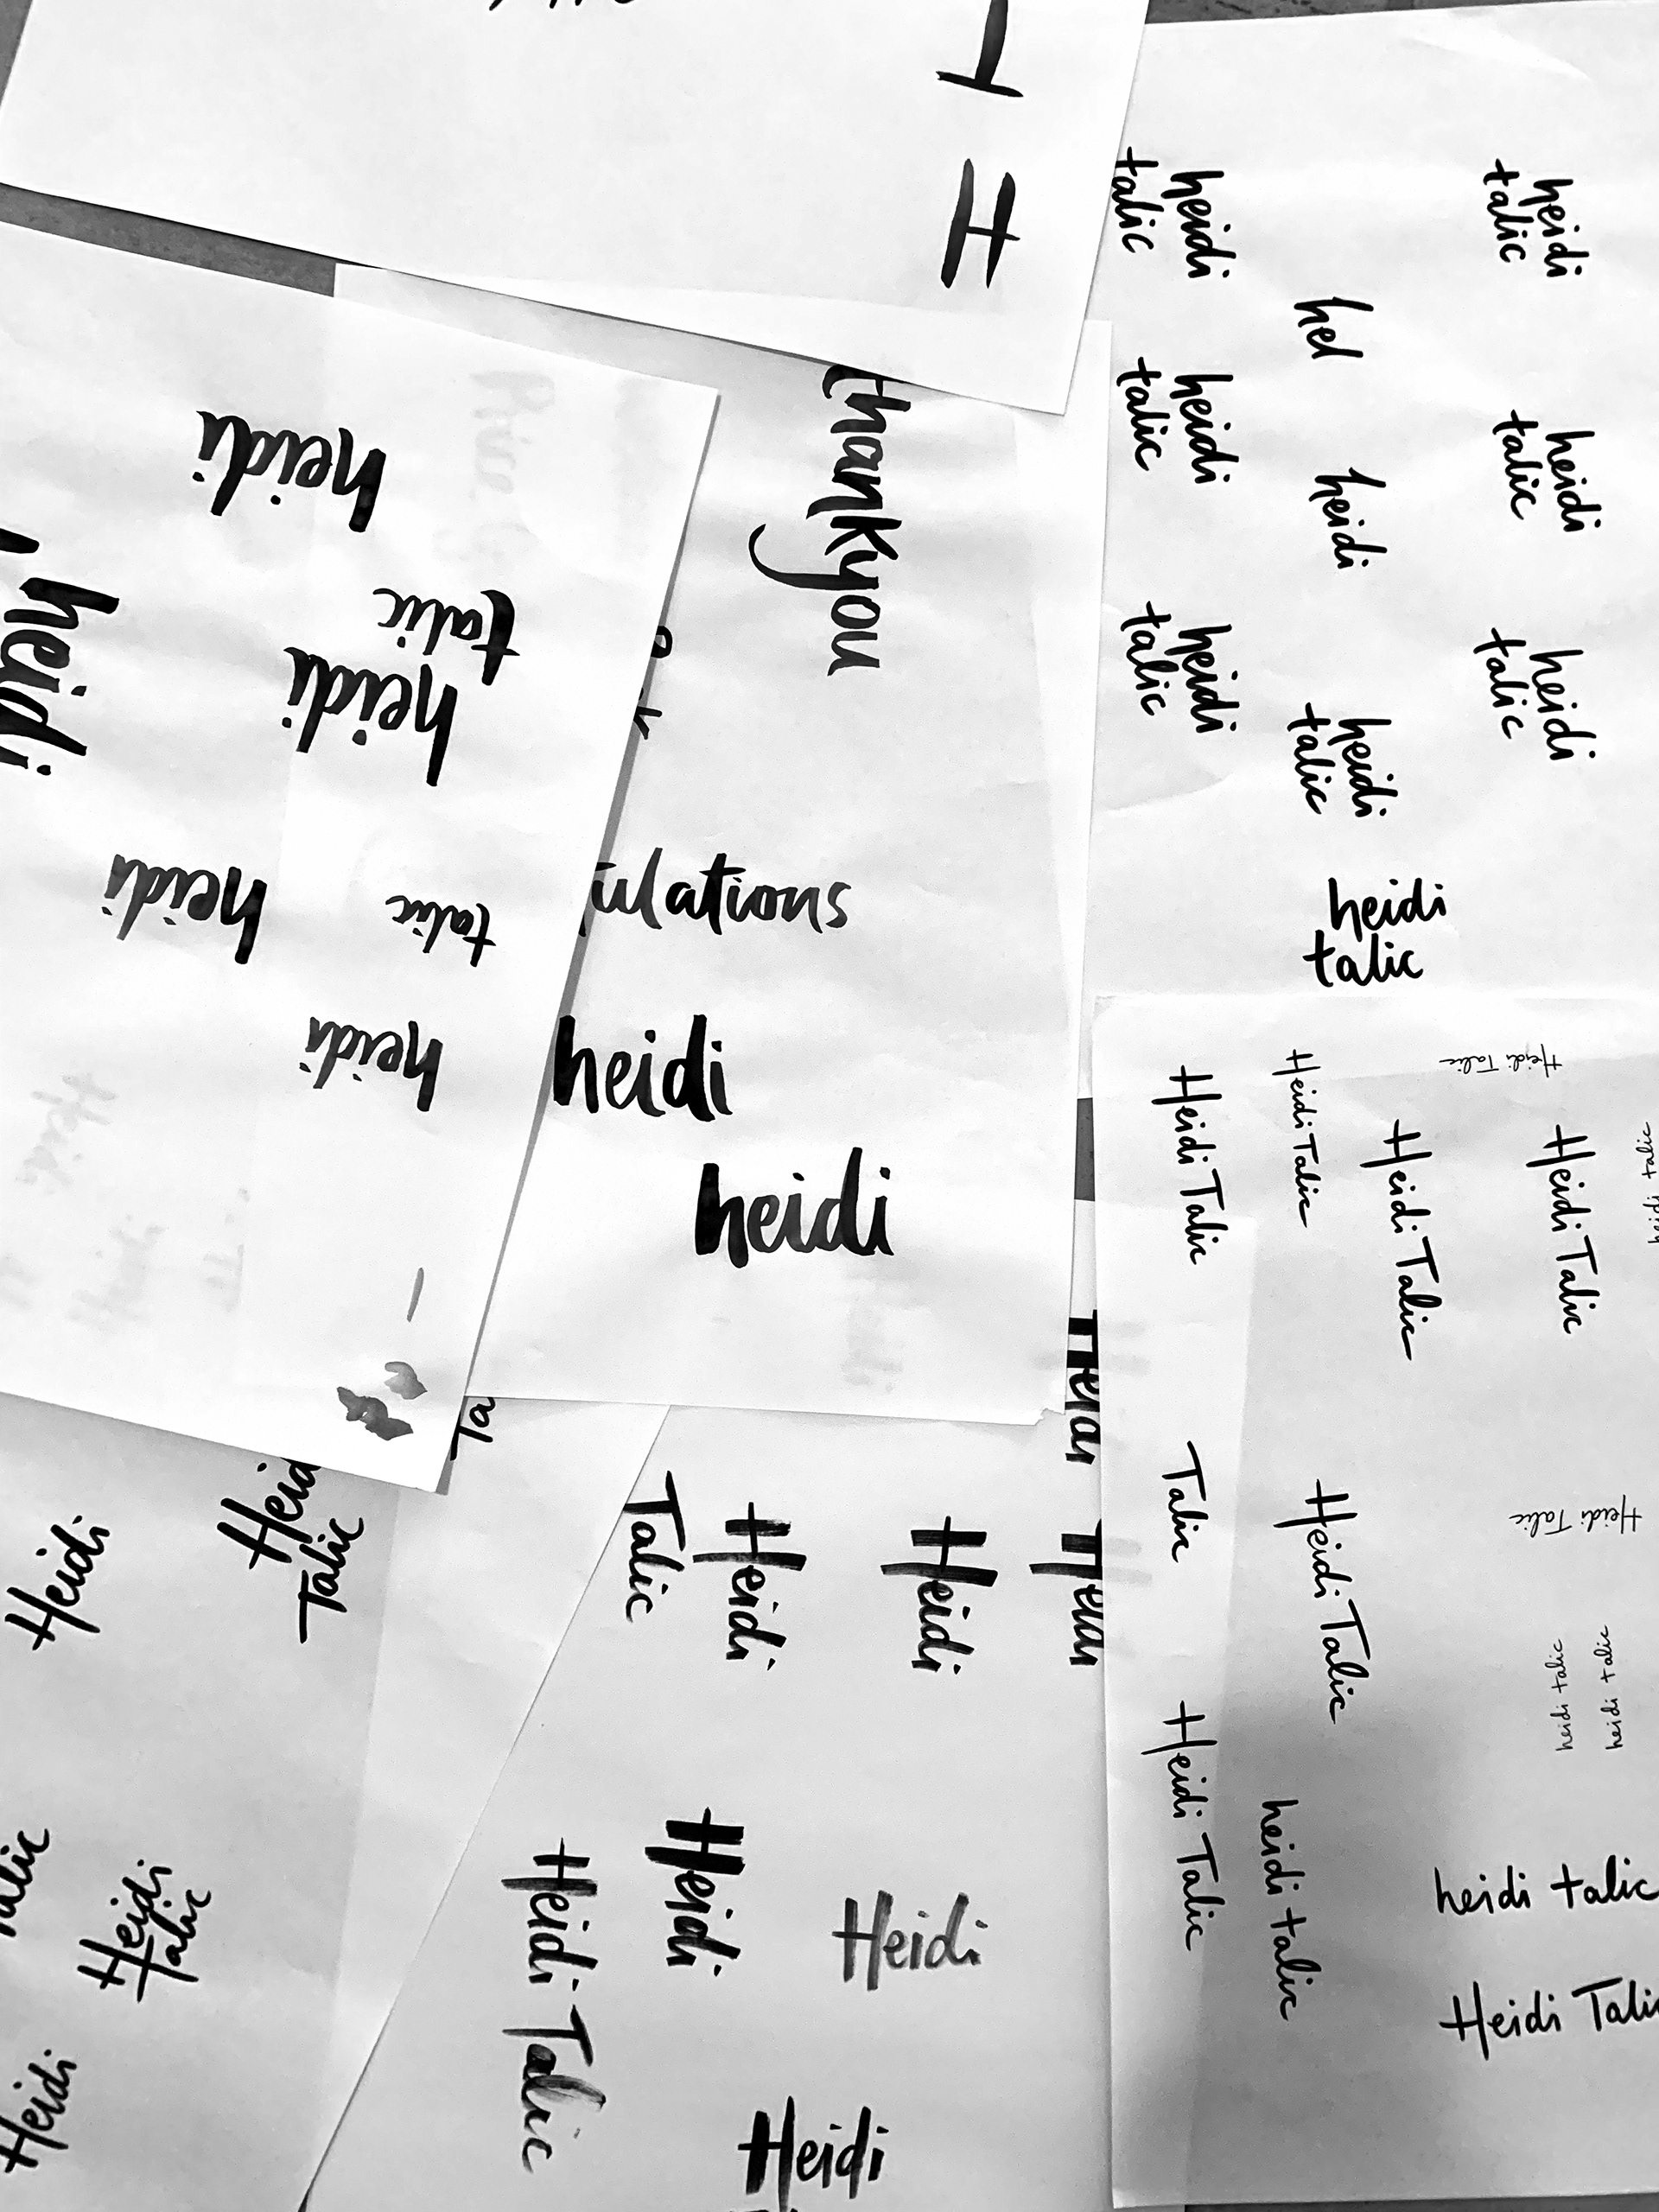 H
heidi
talic
heidi
talic
hel
heidi
talic
heidi
heidi
talic
heidi
talic
heidi
talic
heidi
talic
heidi
talic
heidi
talic
thankyou
ulations
heidi
heidi
heidi
talic
heidi
heidi
talic
heidi
heidi
Heidi Talic
Heidi Talic
Heidi Talic
Heidi Talic
Heidi Talic
heidi talic
Talic
Heidi Talic
Heidi Talic
Heidi Talic
heidi talic
heidi talic
heidi talic
heidi talic
Heidi Tali
Ta
Heidi
Heid
Talic
Heidi
Talic
Heidi
Talic
Heidi
Heidi
Heidi
Heidi Talic
Heidi
Heidi